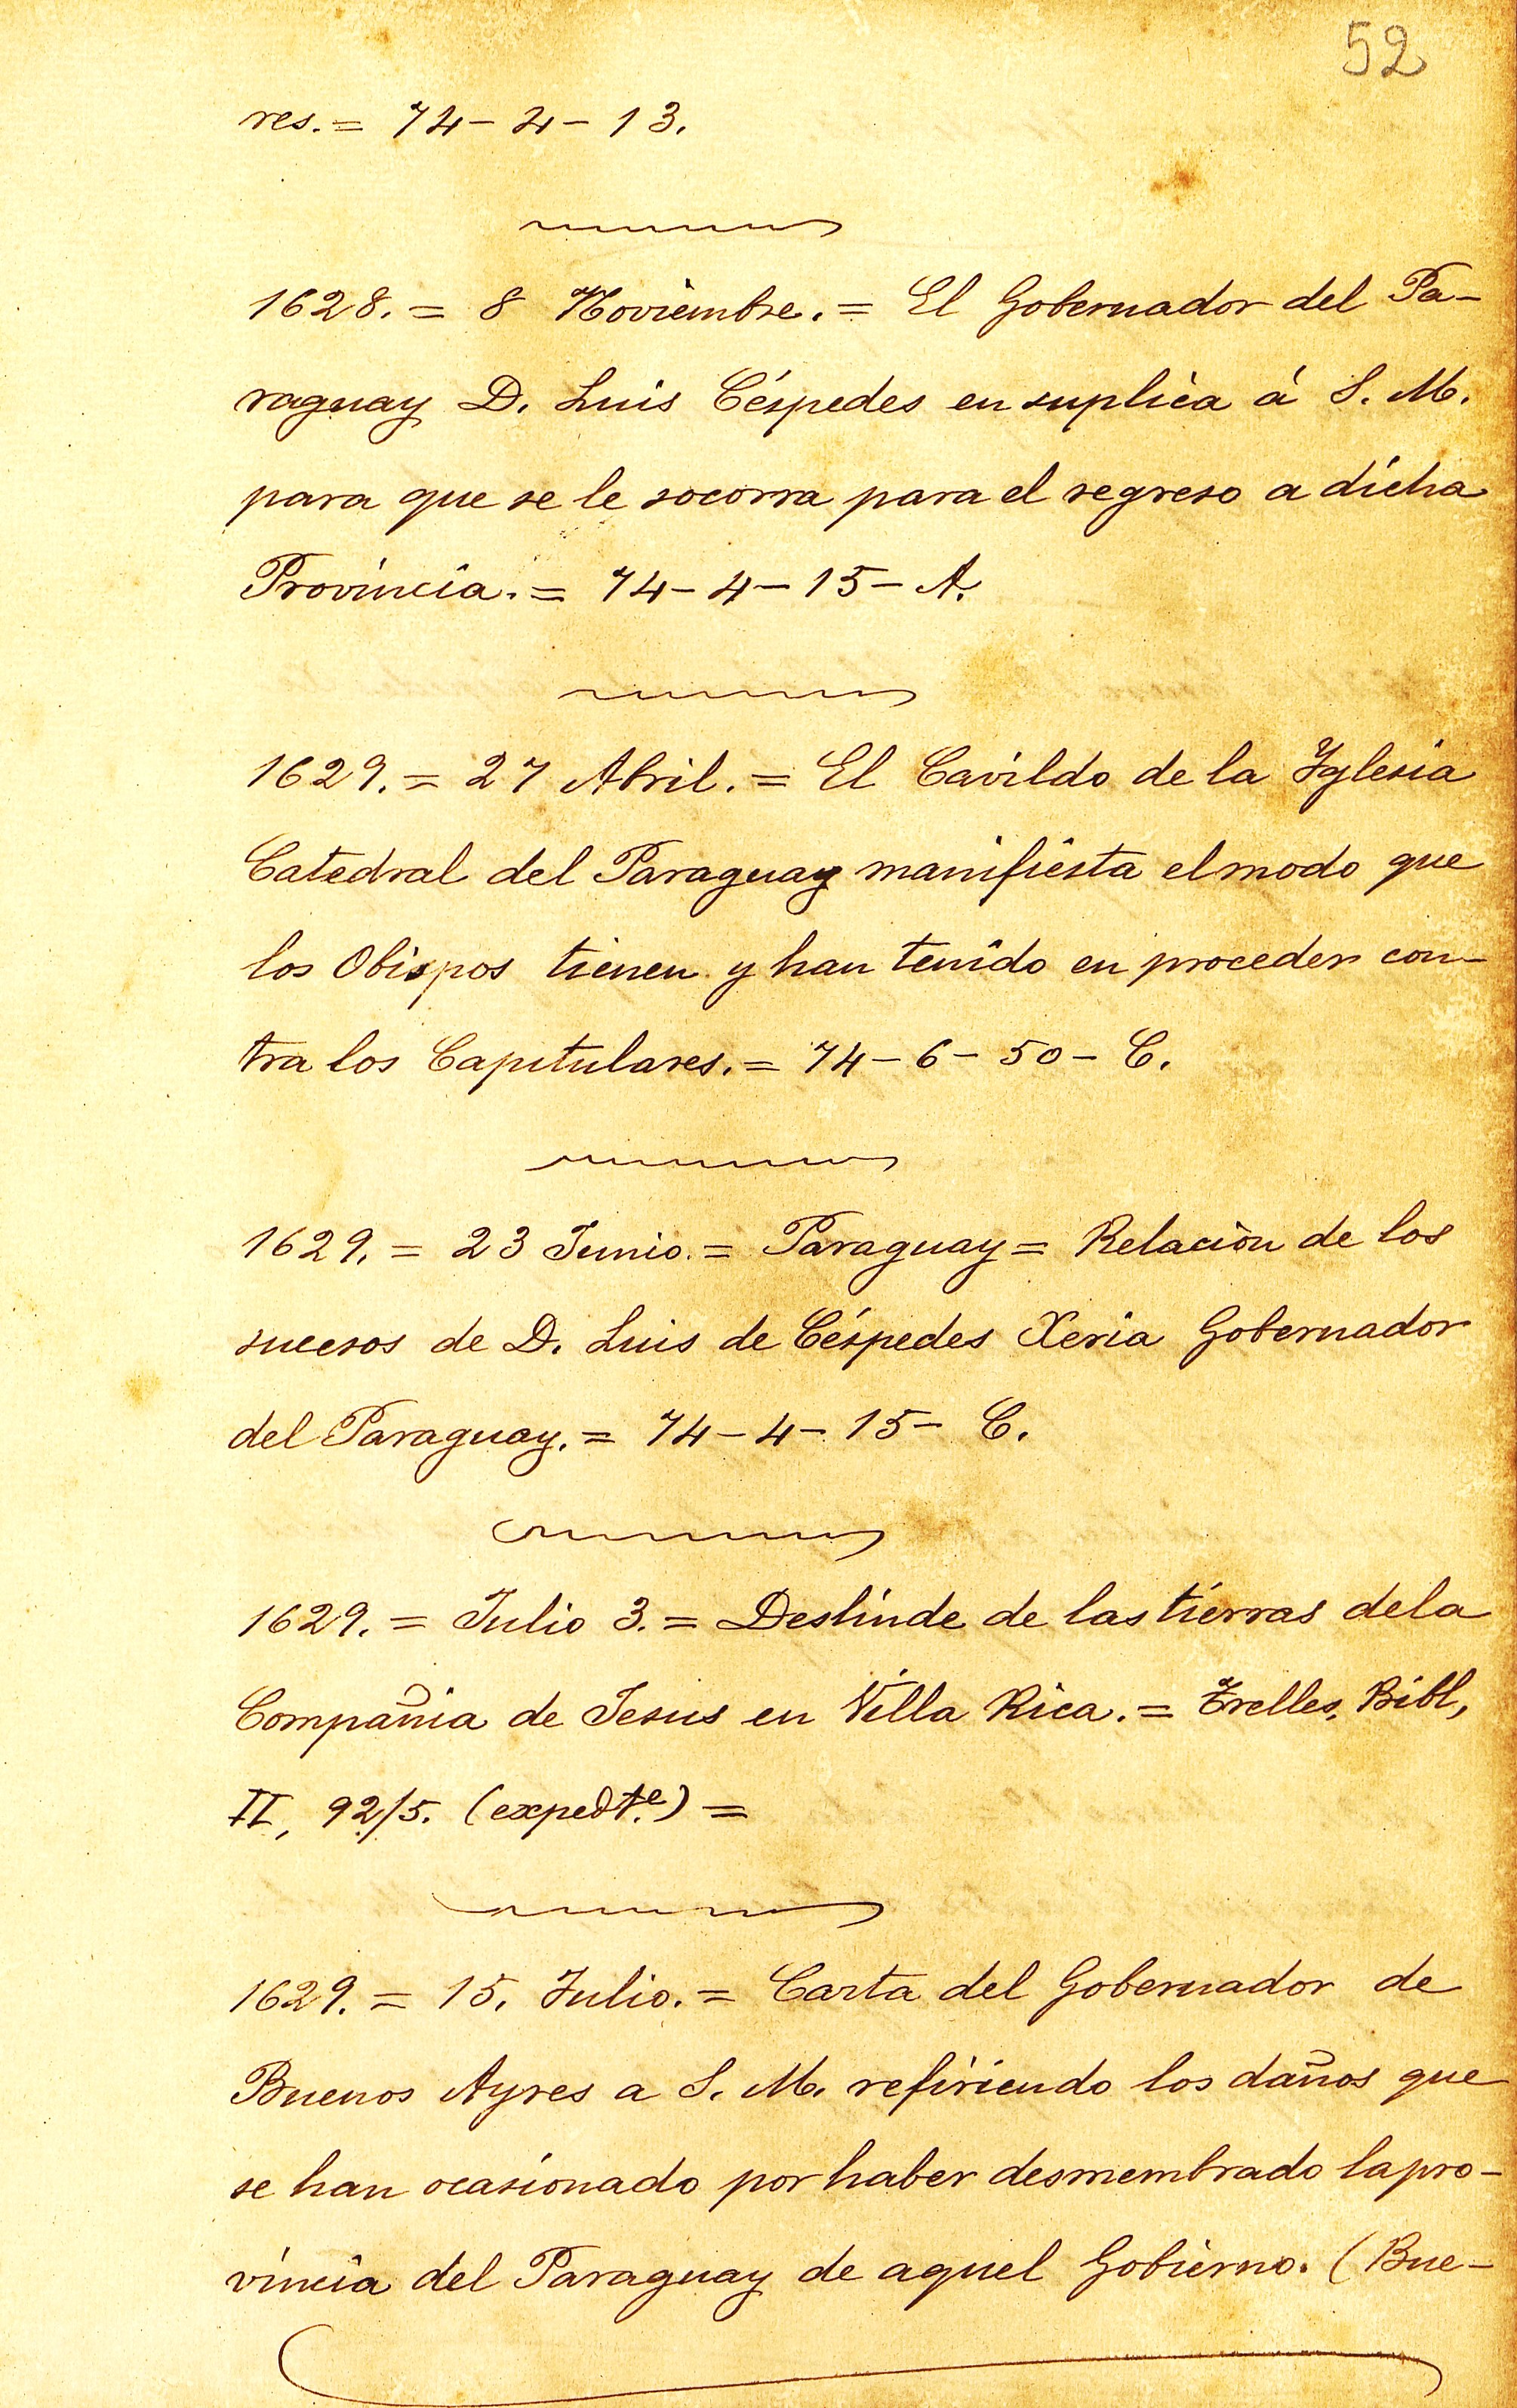 52
res. = 74 - 4 - 13.
1628. = 8 Noviembre. = El Gobernador del Pa-
raguay D. Luis Céspedes en suplica á S. M.
para que se le socorra para el regreso a dicha
Provincia. = 74 - 4 - 15 - A.
1629. = 27 Abril. = El Cavildo de la Yglesia
Catedral del Paraguay manifiesta el modo que
los Obispos tienen y han tenido en proceder con-
tra los Capitulares. = 74 - 6 - 50 - C.
1629. = 23 Junio. = Paraguay = Relación de los
sucesos de D. Luis de Céspedes Xeria Gobernador
del Paraguay. = 74 - 4 - 15 - C.
1629. = Julio 3. = Deslinde de las tierras de la
Compañia de Jesus en Villa Rica. = Trelles, Bibl,
II, 92/5. (expedte.) =
1629. = 15. Julio. = Carta del Gobernador de
Buenos Ayres a S. M. refiriendo los daños que
se han ocasionado por haber desmembrado la pro-
vincia del Paraguay de aquel Gobierno. (Bue-